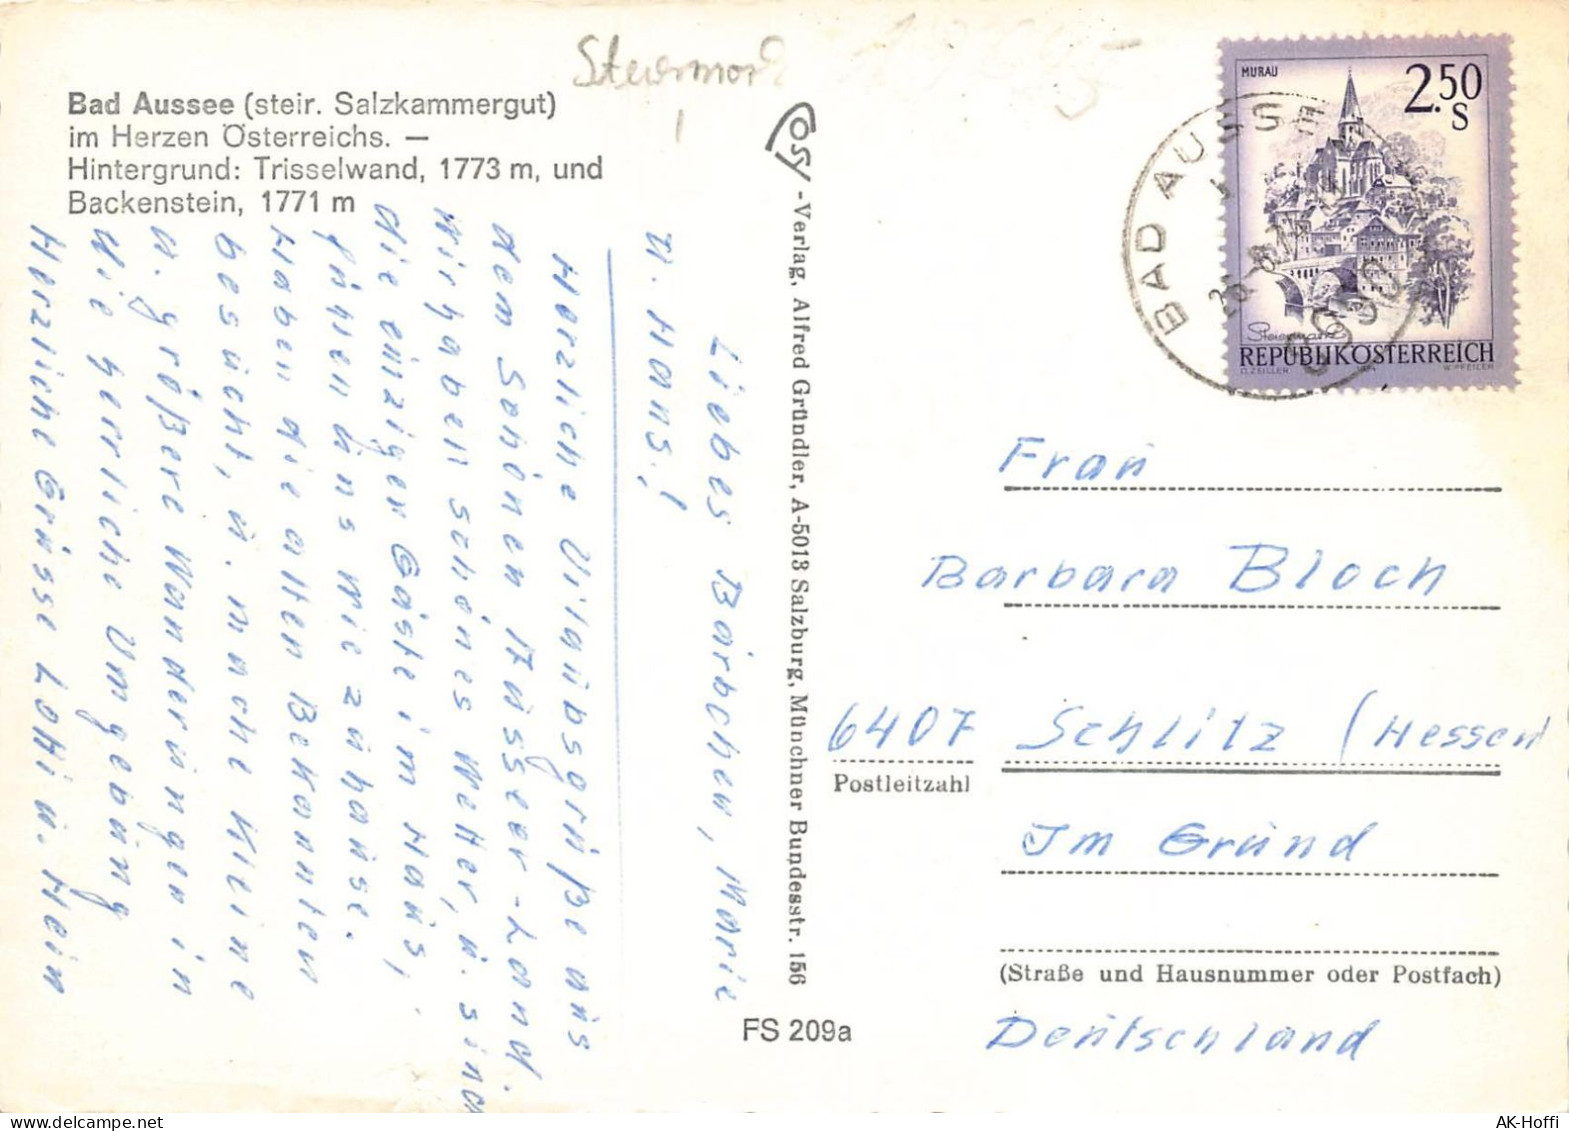 Steiermark
Bad Aussee (steir. Salzkammergut)
im Herzen Österreichs. —
Hintergrund: Trisselwand, 1773 m, und
Backenstein, 1771 m
Liebes Bärbchen, Marie
u. Hans!
Herzliche Urlaubsgrüße aus
dem schönen Ausseer-Land.
Wir haben schönes Wetter, u. sind
die einzigen Gäste im Haus,
fühlen uns wie zuhause.
Haben die alten Bekannten
besucht, u. mache kleine
u. größere Wanderungen in
die herrliche Umgebung
Herzliche Grüsse Lotti u. Hein
Cosy-Verlag, Alfred Gründler, A-5013 Salzburg, Münchner Bundesstr. 156
FS 209a
MURAU
2.50
S
Steiermark
REPUBLIK ÖSTERREICH
O. ZEILLER
1974
W. PFEILER
BAD AUSSEE
8990
Frau
Barbara Bloch
6407 Schlitz (Hessen
Postleitzahl
Im Grund
(Straße und Hausnummer oder Postfach)
Deutschland
AK-Hoffi